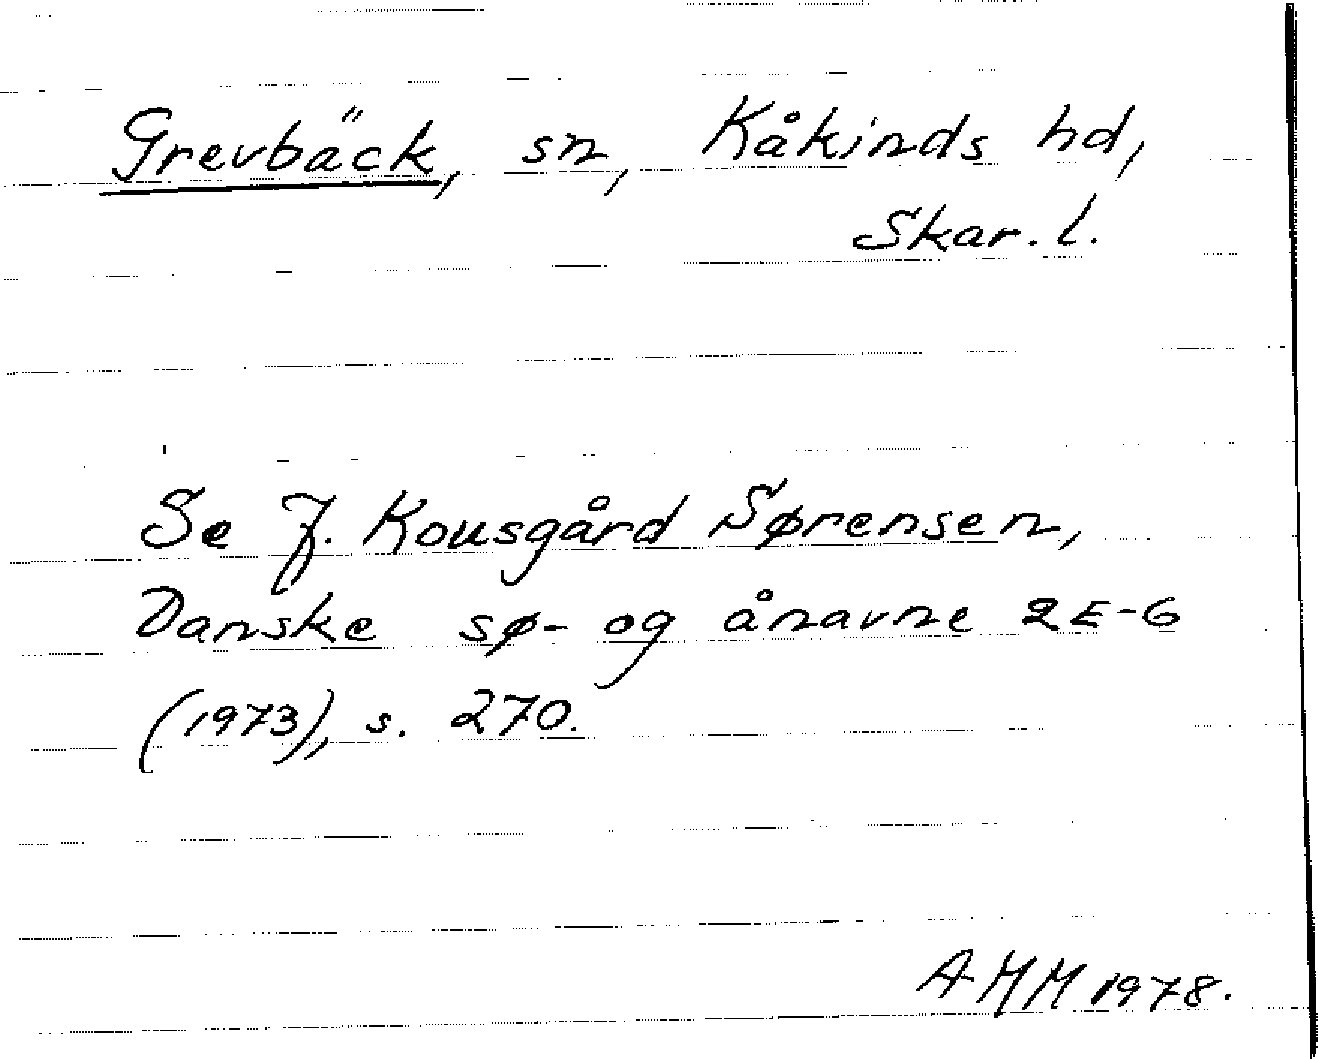 Grevbäck, sn, Kåkinds hd,
Skar. l.
Se J. Kousgård Sørensen,
Danske sø- og ånavne 2E-G
(1973), s. 270.
AHM 1978.